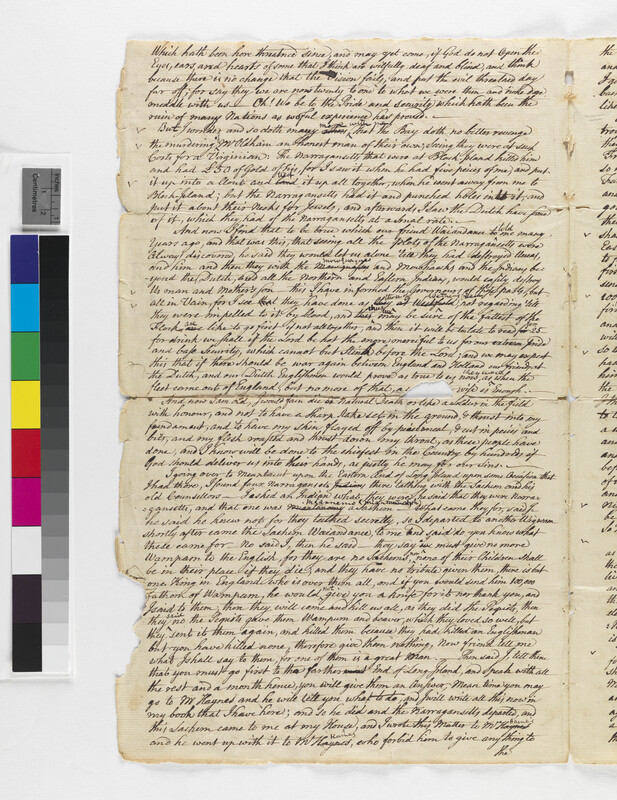 Which hath been here threatned since, and may yet come, if God do not Open the
Eyes, ears, and hearts of some that I think are wilfully deaf and blind, and think
because there is no change that the Vision fails, and put the evil threatned day
far off; for say they we are now twenty to one to what we were then and none dare
meddle with us. Oh! Wo be to the Pride and security which hath been the
ruin of many Nations as woful experience has proved.
But I wonder, and so doth many more with me, that the Bay doth no better revenge
the murdering Mr Oldham an honest man of their own, seeing they were at such
Cost for a Virginian. The Narragansetts that were at Block Island killed him
and had £50 of Gold of his, for I saw it when he had five pieces of me, and put
it up into a clout and tied it up all together, when he went away from me to
Block Island; but the Narragansetts had it and punched holes in it, and
put it about their Necks for Jewels, and afterwards I saw the Dutch have some
of it, which they had of the Narragansetts at a small rate.
And now I find that to be true which our friend Waiandance told me many
Years ago, and that was this, that seeing all the Plots of the Narragansetts were
always discovered, he said they would let us alone 'till they had destroyed Uncas
and him and then they with the Mowquakes and Mohawks and the Indians be-
yond the Dutch, and all the Northern and Eastern Indians, would easily destroy
Us man and Mother's son. This I have informed the Governours of these parts, but
all in Vain for I see they have done as those of Wethersfield, not regarding 'till
they were impelled to it by blood, and thus we may be sure of the fattest of the
Flock are like to go first if not altogether, and then it will be to late to read Jer. 25
for drink we shall if the Lord be not the more merciful to us for our extream pride
and base Security, which cannot but stink before the Lord; and we may expect
this that if there should be war again between England and Holland our friends at
the Dutch, and our Dutch Englishmen would prove as true to us now, as when the
fleet came out of England; but no more of that, a word to the wise is Enough.
And now I am old, I would fain die a natural Death, or like a soldier in the field
with honour, and not to have a sharp stake set in the ground, & thrust into my
fundament, and to have my skin flayed off by piecemeal, & cut in pieces and
bits, and my flesh roasted and thrust down my throat, as these people have
done, and I know will be done to the chiefest in the Country by hundreds, if
God should deliver us into their hands, as justly he may for our Sins.
I going over to Meantacut upon the Eastern End of Long Island upon some Occasion that
I had there, I found four Narragansets there talking with the Sachem and his
old Counsellors. I asked an Indian what they were, he said that they were Narra-
gansetts, and that one was Miannemo a Sachem. What came they for, said I,
he said he knew not for they talked secretly, so I departed to another Wigwam
shortly after came the Sachem Waiandance to me and said do you know what
these came for. No said I, then he said they say I must give no more
Wampum to the English for they are no Sachems, nor none of their Children shall
be in their place if they die, and they have no tribute given them, there is but
one King in England who is over them all, and if you would send him 100,000
fathom of Wampum, he would not give you a knife for it nor thank you, and
I said to them, then they will come and kill us all, as they did the Pequits, then
they said no the Pequots gave them Wampum and beaver, which they loved so well, but
they sent it them again, and killed them because they had killed an Englishman
but you have killed none, therefore give them nothing. Now friend tell me
what I shall say to them, for one of them is a great Man. Then said I tell them
that you must go first to the farther End of Long Island, and speak with all
the rest and a month hence, you will give them an Answer. Mean time you may
go to Mr Haynes and he will tell you what to do, and I will write all this now in
my book that I have here; and so he did and the Narragansetts departed, and
this Sachem came to me at my House, and I wrote this Matter to Mr Haynes
and he went up with it to Mr Haynes, who forbid him to give any thing to
the